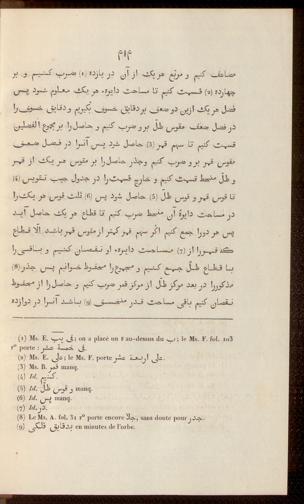 ۴۱۴
مضاعف کنیم و مربع هر یک از آن در یازده (۱) ضرب کنیم و بر
چهارده (2) قسمت کنیم تا مساحت دایره هر یک معلوم شود پس
فضل هر یک ازین دو ضعف بر دقایق خسوف بگیریم و دقایق خسوف را
در فضل ضعف مقوس ظلّ برو ضرب کنیم و حاصل را بر مجموع الفضلین
قسمت کنیم تا سهم قمر (3) حاصل شود پس آنرا در فضل ضعف
مقوس قمر برو ضرب کنیم وجذر حاصل را بر مقوس هر یک از قمر
و ظلّ منحط قسمت کنیم و خارج قسمت را در جدول جیب تقویس (4)
تا قوس قمر و قوس ظلّ (5) حاصل شود پس (6) ثلث قوس هر یک را
در مساحت دایرهٔ آن منحط ضرب کنیم تا قطاع هر یک حاصل آید
پس هر دو را جمع کنیم اگر سهم قمر کمتر از مقوس قمر باشد الّا قطاع
قمر را از (7) مساحت دایره او نقصان کنیم و باقی را
با قطاع ظلّ جمع کنیم و مجموع را محفوظ خوانیم پس جذر (8)
مذکور را در بعد مرکز ظل از مرکز قمر ضرب کنیم و حاصل را از محفوظ
نقصان کنیم باقی مساحت قدر منخسف (9) باشد آنرا در دوازده
(1) Ms. E. فی یب; on a placé un ۱ au-dessus du ب; le Ms. F. fol. 103
rº porte : فی خمسة عشر.
(2) Ms. E. علی; le Ms. F. porte علی اربعة عشر.
(3) Ms. B. قمر manq.
(4) Id. کنیم.
(5) Id. و قوس ظلّ manq.
(6) Id. پس manq.
(7) Id. در.
(8) Le Ms. A. fol. 31 rº porte encore جلا, sans doute pour جذر.
(9) بدقایق فلکی en minutes de l'orbe.